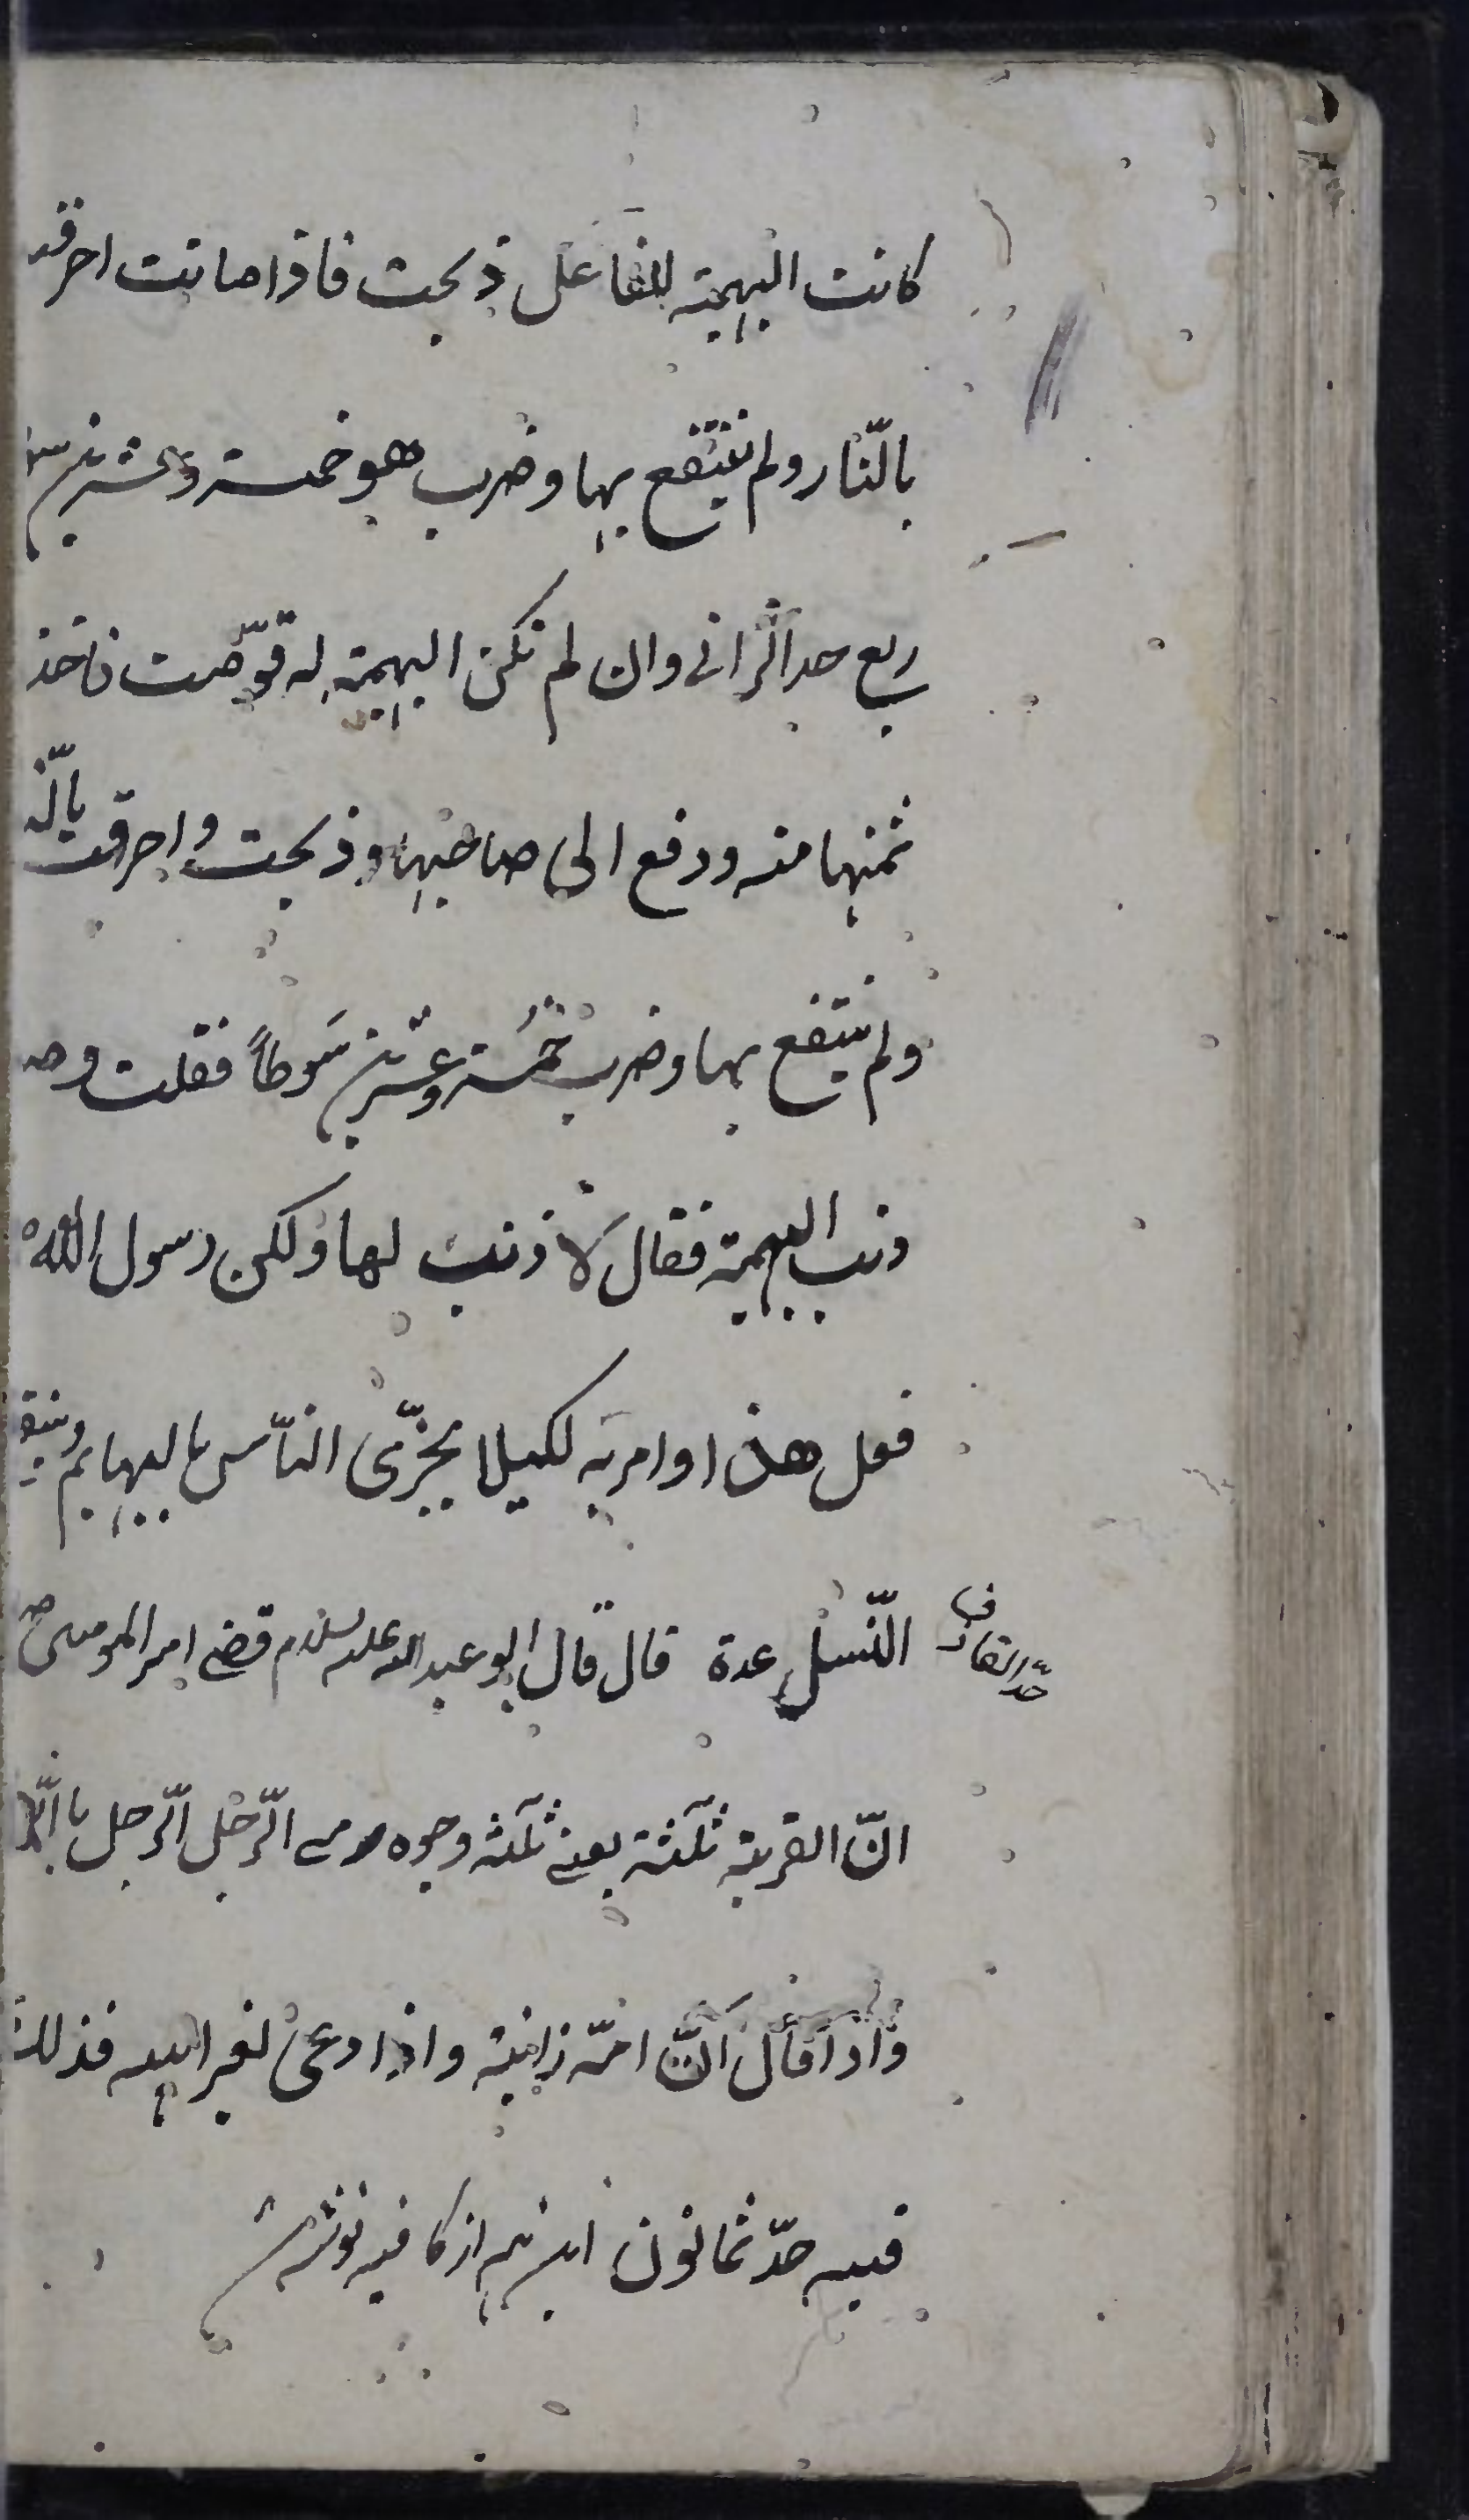 كانت البهيمة للفاعل ذبحت فاذا ماتت احرقت
بالنّار ولم ينتفع بها وضرب هو خمسة وعشرين
ربع حد الزّانى وان لم تكن البهيمة له قوّمت فاخذ
ثمنها منه ودفع الى صاحبها وذبحت واحرقت
ولم ينتفع بها وضرب خمسة وعشرين سَوطاً فقلت وما
ذنب البهيمة فقال لا ذنب لها ولكن رسول الله
فعل هذا وامر به لكيلا يجزّى النّاس بالبهايم
النّسل عدة قال قال ابو عبد الله عليه السلام قضى امير المومنين
حدّ القاذف
انّ الفرية ثلثة يعنى ثلثة وجوه رمى الرّجل الرّجل بالزّنا
واذا قال انّ امّه زانية واذا دعى لغير ابيه فذلك
فيه حدّ ثمانون اين هم از كافيه نوشتم